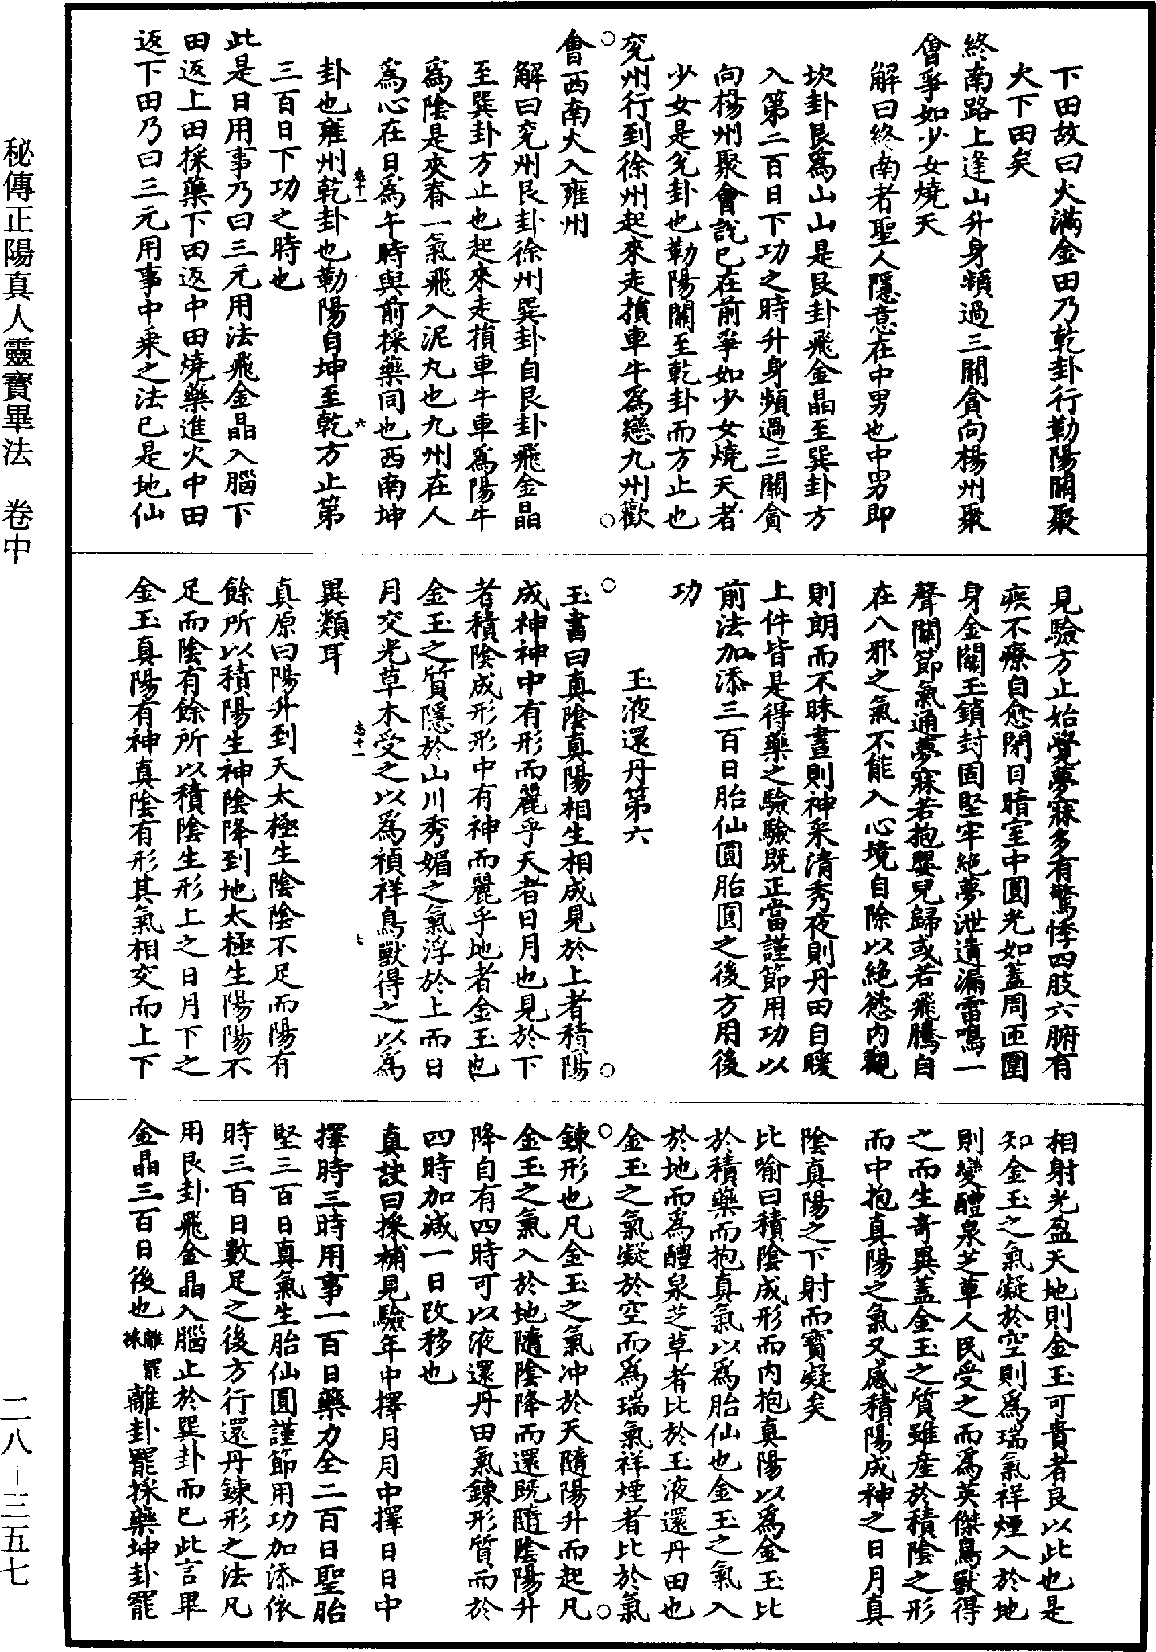 下田故曰火滿金田乃乾卦行勒陽關聚
火下田矣
終南路上逢山升身頻過三關貪向楊州聚
會爭如少女燒天
解曰終南者聖人隱意在中男也中男即
坎卦艮為山山是艮卦飛金晶至巽卦方
入第二百日下功之時升身頻過三關貪
向楊州聚會說巳在前爭如少女燒天者
少女是兊卦也勒陽關至乾卦而方止也
兖州行到徐州起來走損車牛為戀九州歡
會西南火入雍州
解曰兖州艮卦徐州巽卦自艮卦飛金晶
至巽卦方止也起來走損車牛車為陽牛
為陰是夾脊一氣飛入泥丸也九州在人
為心在日為午時與前採藥同也西南坤
卦也雍州乾卦也勒陽自坤至乾方止第
三百日下功之時也
此是日用事乃曰三元用法飛金晶入腦下
田返上田採藥下田返中田燒藥進火中田
返下田乃曰三元用事中乘之法巳是地仙
見驗方止始覺夢寐多有驚悸四肢六腑有
疾不療自愈閉目暗室中圓光如蓋周匝圍
身金關玉鎖封固堅牢絕夢泄遺漏雷鳴一
聲關節氣通夢寐若抱嬰兒歸或若飛騰自
在八邪之氣不能入心境自除以絕慾內觀
則朗而不昧晝則神采清秀夜則丹田自暖
上件皆是得藥之驗驗既正當謹節用功以
前法加添三百日胎仙圓胎圓之後方用後
功
玉液還丹第六
玉書曰真陰真陽相生相成見於上者積陽
成神神中有形而麗乎天者日月也見於下
者積陰成形形中有神而麗乎地者金玉也
金玉之質隱於山川秀媚之氣浮於上而日
月交光草木受之以為禎祥鳥獸得之以為
異類耳
真原曰陽升到天太極生陰陰不足而陽有
餘所以積陽生神陰降到地太極生陽陽不
足而陰有餘所以積陰生形上之日月下之
金玉真陽有神真陰有形其氣相交而上下
相射光盈天地則金玉可貴者良以此也是
知金玉之氣凝於空則為瑞氣祥煙入於地
則變醴泉芝草人民受之而為英傑鳥獸得
之而生奇異蓋金玉之質雖產於積陰之形
而中抱真陽之氣又感積陽成神之日月真
陰真陽之下射而寶凝矣
比喻曰積陰成形而內抱真陽以為金玉比
於積藥而抱真氣以為胎仙也金玉之氣入
於地而為醴泉芝草者比於玉液還丹田也
金玉之氣凝於空而為瑞氣祥煙者比於氣
鍊形也凡金玉之氣冲於天隨陽升而起凡
金玉之氣入於地隨陰降而還既隨陰陽升
降自有四時可以液還丹田氣鍊形質而於
四時加減一日改移也
真訣曰採補見驗年中擇月月中擇日日中
擇時三時用事一百日藥力全二百日聖胎
堅三百日真氣生胎仙圓謹節用功加添依
時三百日數足之後方行還丹鍊形之法凡
用艮卦飛金晶入腦止於巽卦而巳此言畢
金晶三百日後也離卦罷採藥坤卦罷
秘傳正陽真人靈寶畢法　卷中
二八－三五七